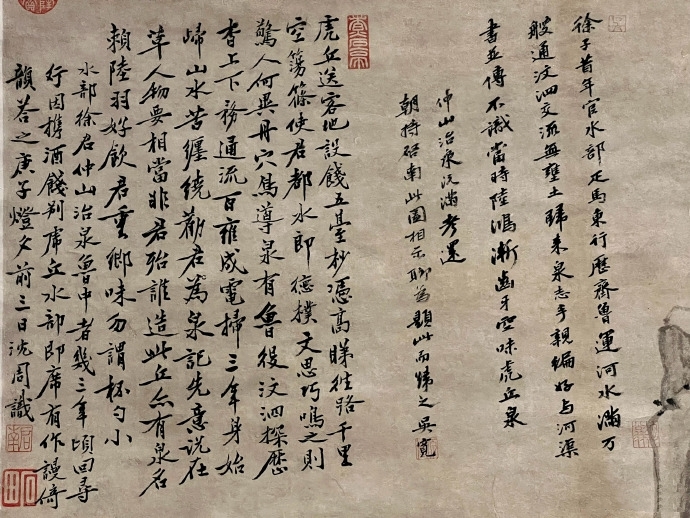 徐子昔年官水部走馬東行歷齊魯運河水滿万
艘通汶泗交流無壅土歸来泉志手親編好与河渠
書並傳不識當時陸鴻漸齒牙空味虎丘泉
仲山治泉汶滿考還
朝持啓南此圖相示聊為題此而歸之吳寬
虎丘送客地設餞五臺杪憑高睇往路千里
空篠使君都水郎德樸文思巧鳴之則
驚人何異丹穴鳥導泉有魯役汶泗探歷
杳上下務通流百雍成電掃三年身始
歸山水苦纏繞勸君為泉記先意説在
草人物要相當非君殆誰造此丘亦有泉名
賴陸羽好飲君重鄉味勿謂杯勺小
水部徐君仲山治泉魯中者幾三年頃回尋
行因携酒餞别虎丘水部即席有作謾倚
韻荅之庚子燈夕前三日沈周識